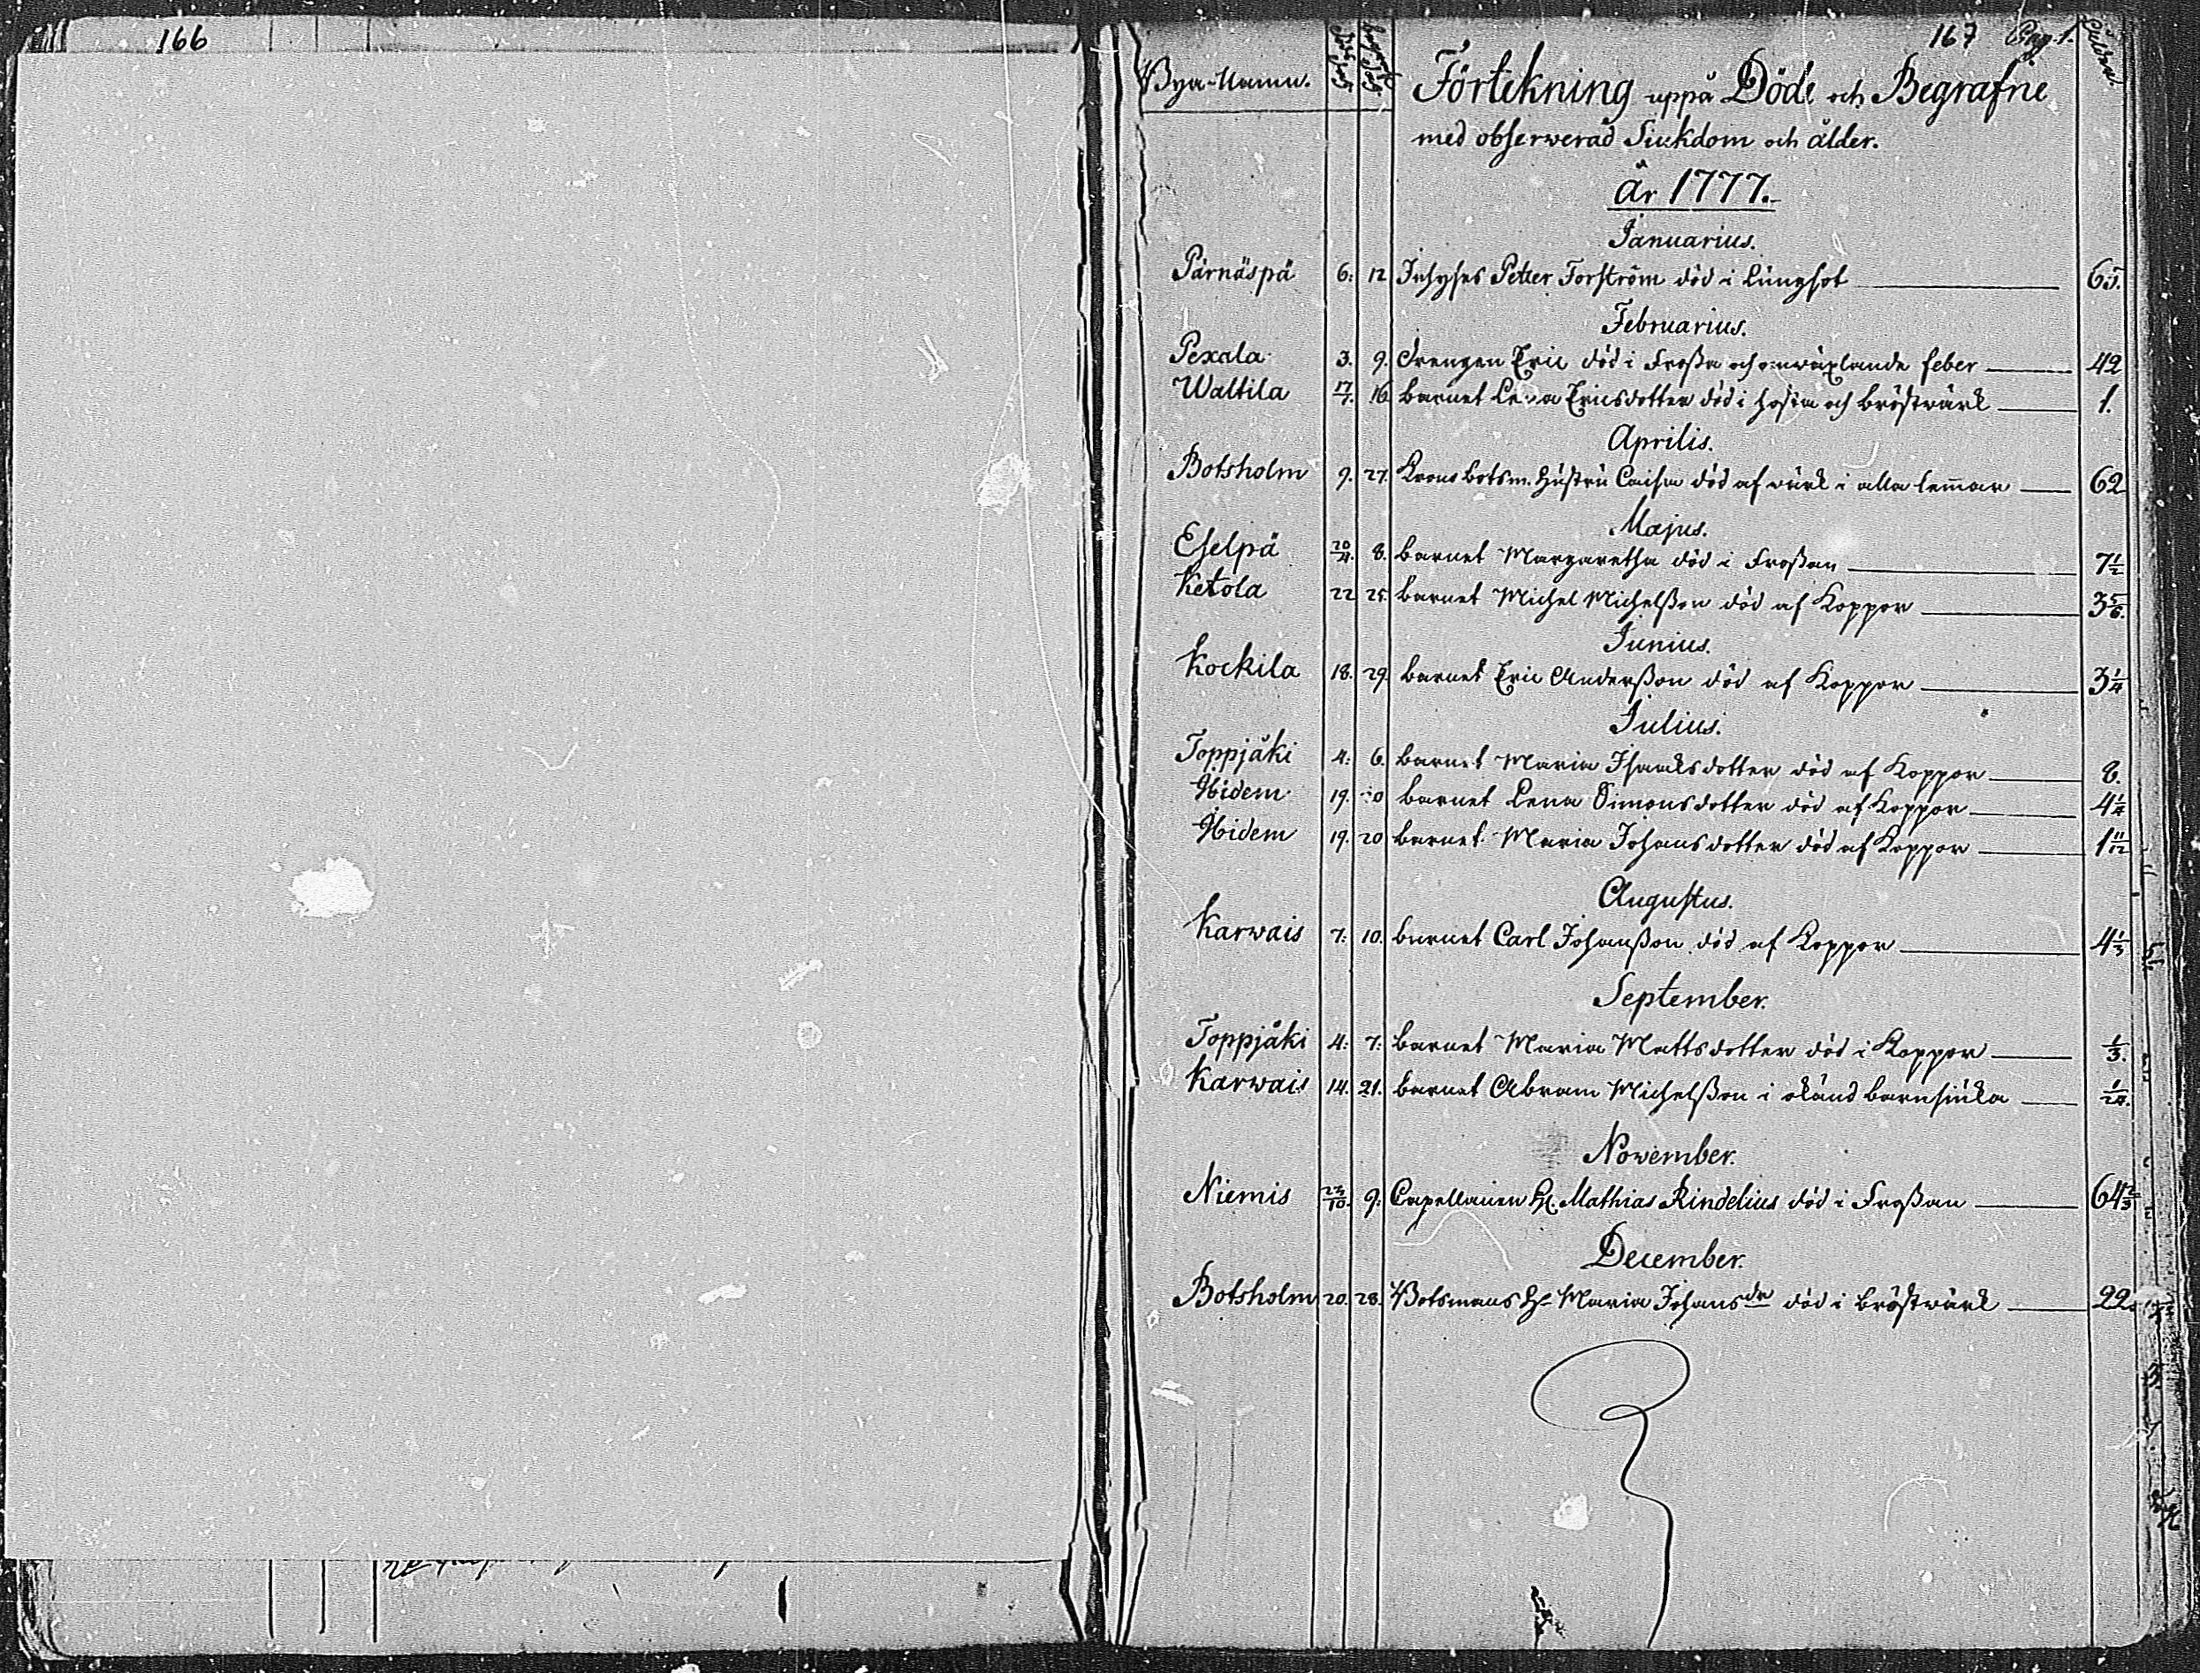 166
167 Pag. 1.
Bya-Namn. Död dag begrafn. dag. Förtekning uppå Döde och Begrafne Ålder.
med observerad Siukdom och ålder.
År 1777.
Januarius.
Pärnäspä 6: 12 Inhyses Petter Forström död i Lungsot 65.
Februarius.
Pexala 3. 9. Drengen Eric död i Frossa och omwäxlande feber 42
Waltila 17/1. 16 barnet Lena Ericsdotter död i hosta och bröstwärk 1.
Aprilis.
Botsholm 9. 27. Krono botsm. Hustru Caisa död af wärk i alla lemmar 62
Majus.
Eselpä 20/4. 8. barnet Margaretha död i Frossan 7 1/2
Ketola 22 25. barnet Michel Michelsson död af Koppor 3 5/6.
Junius.
Kockila 18. 29. barnet Eric Andersson död af Koppor 3 1/4
Julius.
Toppjåki 4: 6. barnet Maria Isaaksdotter död af Koppor 8.
Ibidem 19. 20 barnet Lena Simonsdotter död af Koppor 4 1/4
Ibidem 19. 20 barnet Maria Johansdotter död af Koppor 1 11/12
Augustus.
Karwais 7: 10. barnet Carl Johansson död af Koppor 4 1/3
September.
Toppjåki 4: 7: barnet Maria Mattsdotter död i Koppor 1/3.
Karwais 14. 21. barnet Abram Michelsson i okänd barnsiuka 1/24.
November.
Niemis 23/10. 9: Capellanen H. Mathias Rindelius död i Frossan 64 2/3
December.
Botsholm 20. 28. Botsmans H. Maria Johansdr död i bröstwärk 22.